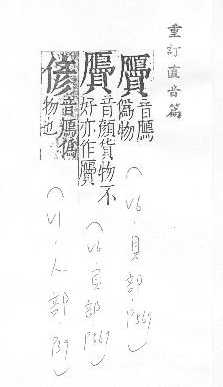 重訂直音篇
贗 音鴈
偽物
贋 音顏貨物不
好亦作贗
偐 音鴈偽
物也
（V6．貝部．P369）
（V6．貝部．P369）
（V1．人部．P39）